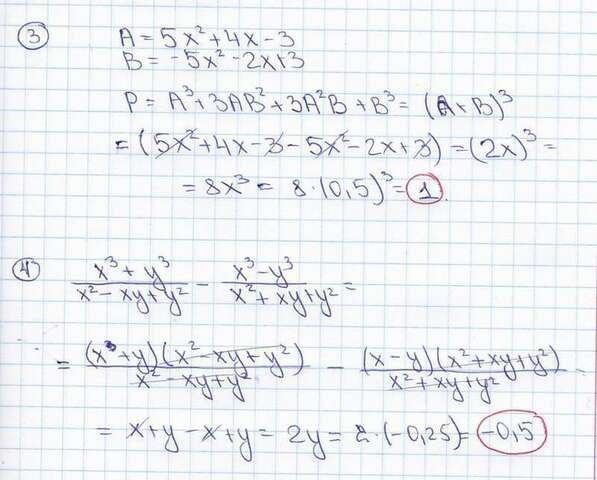 3 A = 5x² + 4x - 3
B = -5x² - 2x + 3
P = A³ + 3AB² + 3A²B + B³ = (A + B)³
= (5x² + 4x - 3 - 5x² - 2x + 3) = (2x)³ =
= 8x³ = 8·(0,5)³ = 1.
4 (x³ + y³)/(x² - xy + y²) - (x³ - y³)/(x² + xy + y²) =
= (x + y)(x² - xy + y²)/(x² - xy + y²) - (x - y)(x² + xy + y²)/(x² + xy + y²) =
= x + y - x + y = 2y = 2·(-0,25) = -0,5